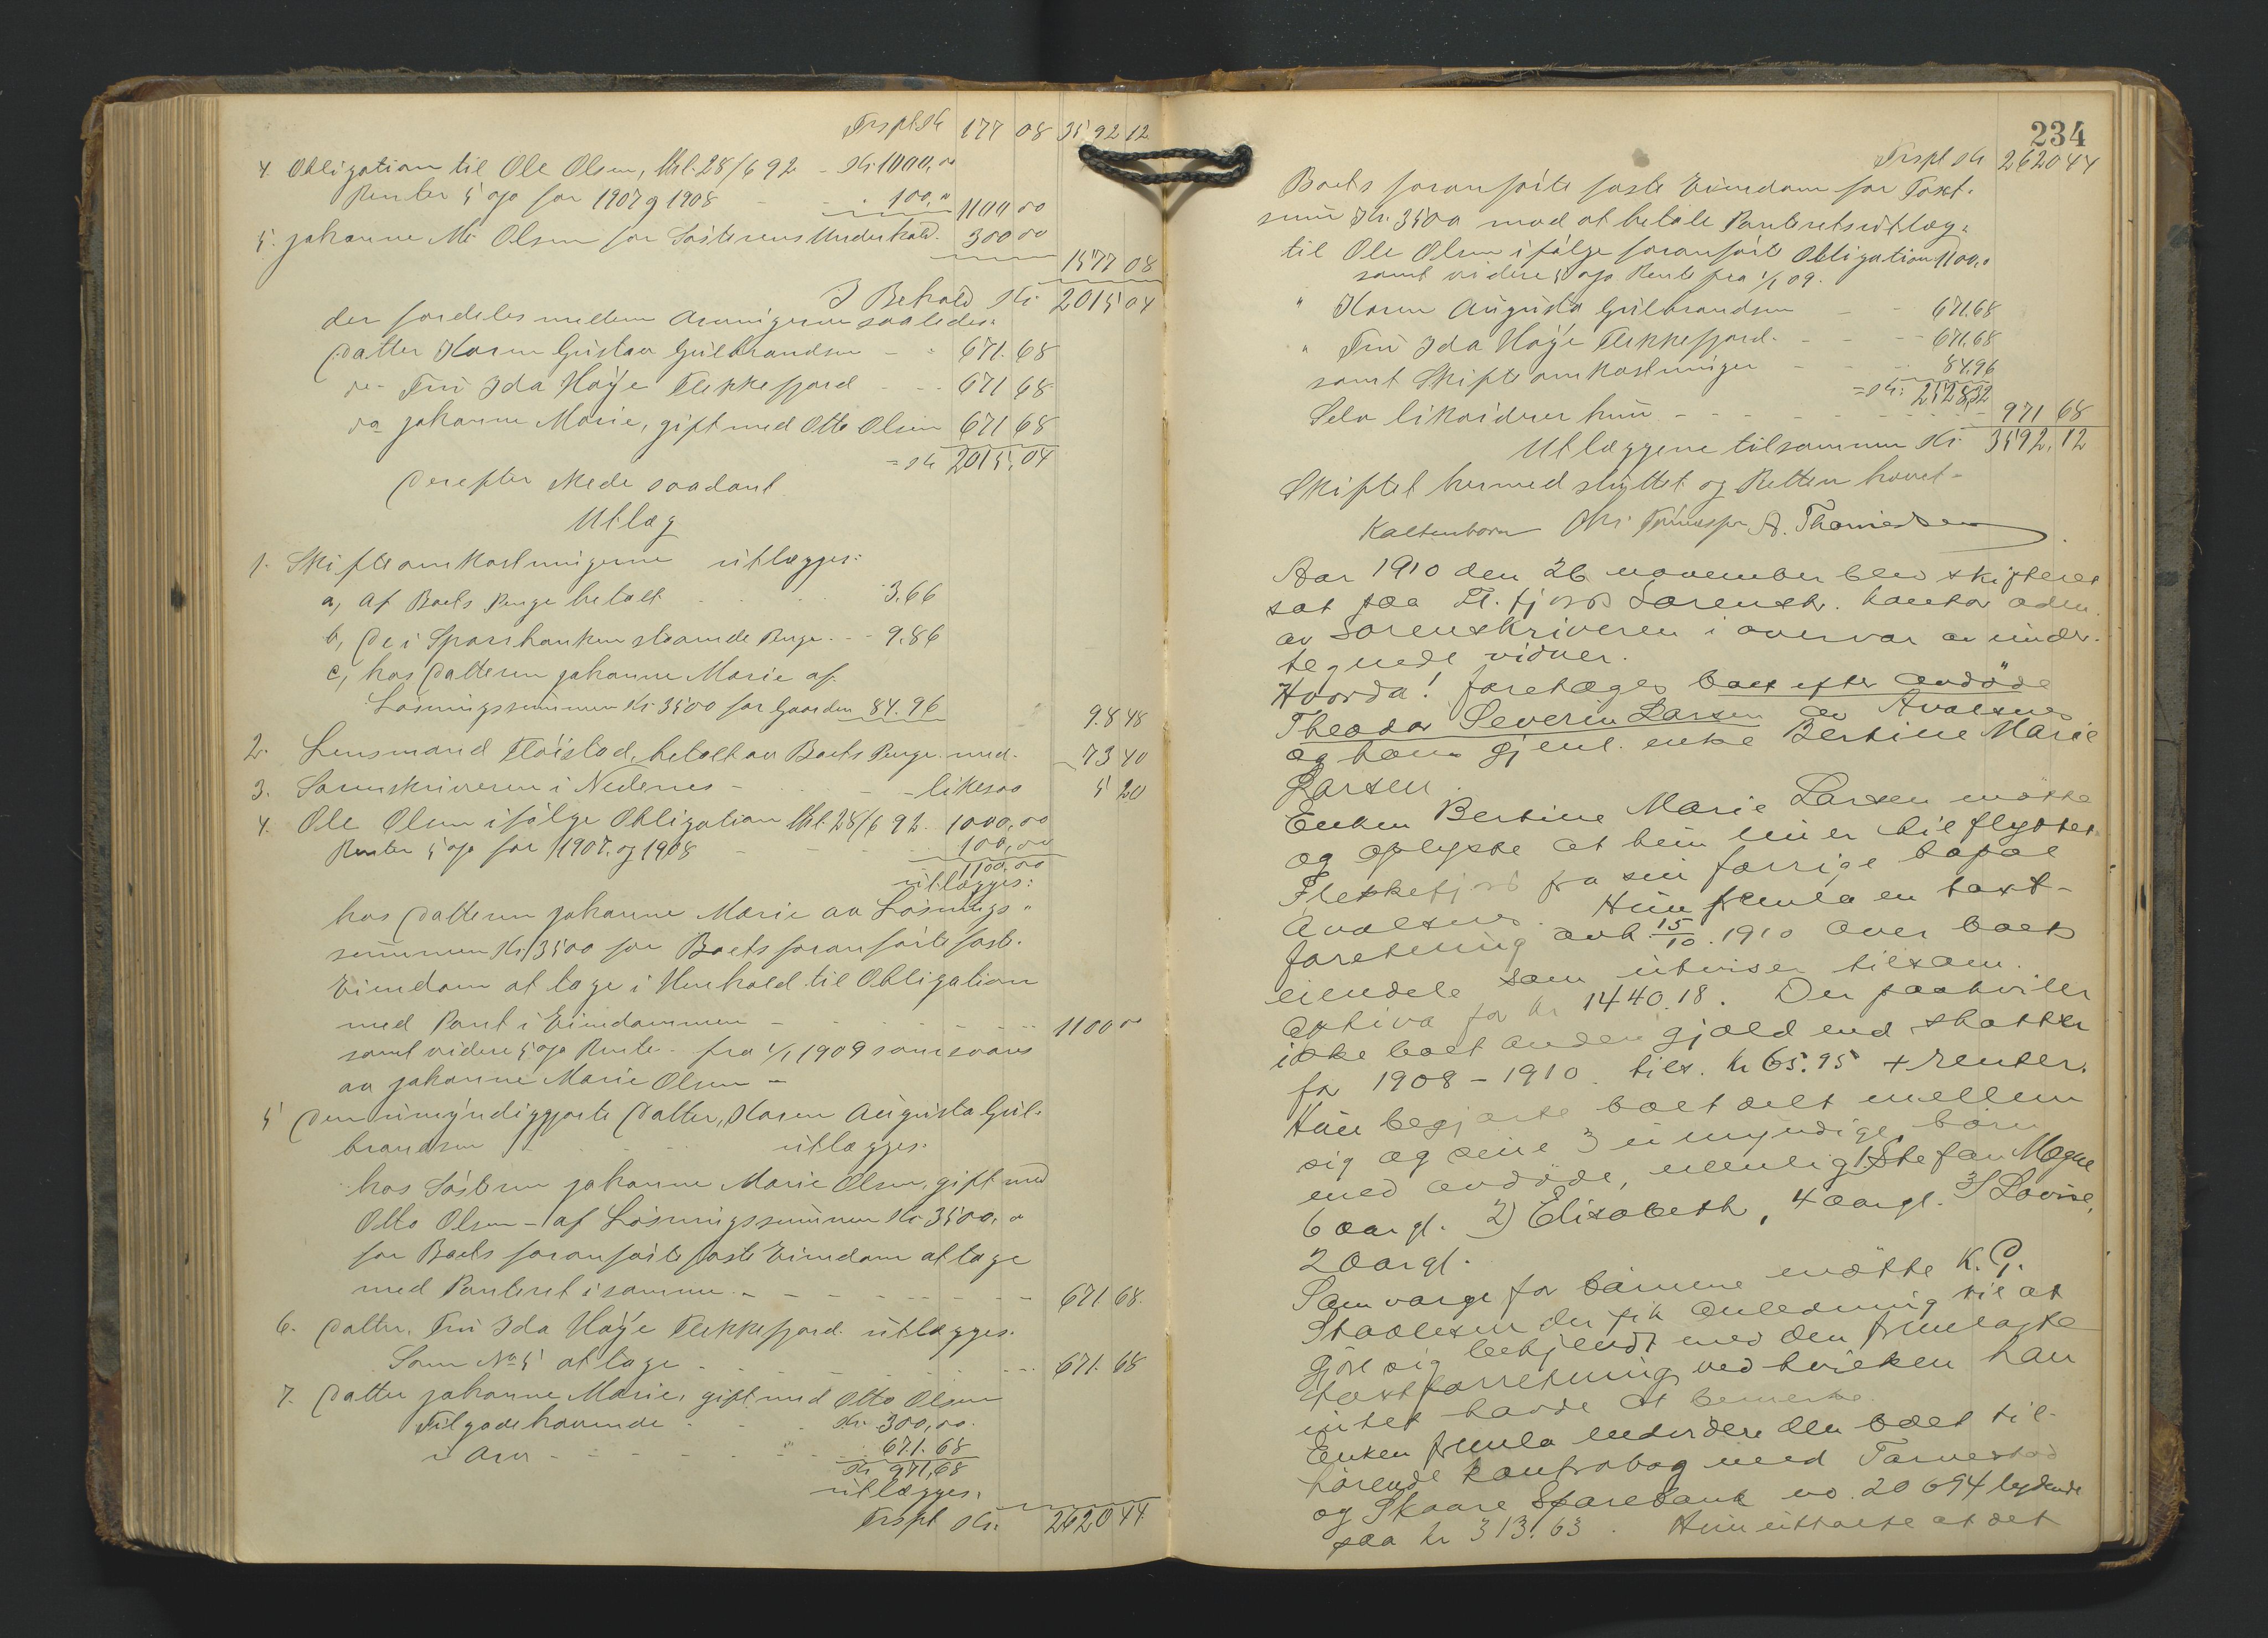 Trspt Kr 177 08 3592 12
4. Obligation til Ole Olsen, thl. 28/6 92 - Kr 1000,00
Renter 5 o/o for 1907 og 1908 - - 100,00 1100 00
5. Johanne M. Olsen for Søsterens Underhold. 300 00
1577 08
I Behold Kr. 2015 04
der fordeles mellem Arvingerne saaledes:
Datter Karen Gustava Gulbrandsen - - 671.68
do - Fru Ida Høye Flekkefjord - - 671 68
do Johanne Marie, gift med Otto Olsen 671 68
= Kr 2015,04
Derefter skede saadant
Utlæg
1. Skifteomkostningerne utlægges:
a, af Boets Penge betalt - - 3.66
b, De i Sparebanken staaende Penge. - - 9.86
c, hos Datteren Johanne Marie af
Løsningssummen Kr 3500 for Gaarden 84.96
98 48
2. Lensmand Fløistad, betalt av Boets Penge med - 73 40
3. Sorenskriveren i Nedenes - - - likesaa 5 20
4. Ole Olsen ifølge Obligation thl. 28/6 92. 1000,00
Renter 5 o/o for 1907. og 1908 - - 100,00
1100,00
utlægges:
hos Datteren Johanne Marie av Løsnings-
summen Kr. 3500 for Boets foranførte faste
Eiendom at tage i Henhold til Obligation
med Pant i Eiendommen - - - 1100 00
samt videre 5 o/o Rente - fra 1/1 1909 som svares
av Johanne Marie Olsen -
5 Den umyndiggjorte Datter, Karen Augusta Gul-
brandsen - - utlægges:
hos Søsteren Johanne Marie Olsen, gift med
Otto Olsen - af Løsningssummen Kr 3500,00
for Boets foranførte faste Eiendom at tage
med Panteret i samme - - - 671 68.
6. Datter, Fru Ida Høye Flekkefjord utlægges.
Som No 5 at tage - - - 671. 68
7. Datter Johanne Marie, gift med Otto Olsen
Tilgodehavende - - Kr. 300,00.
i Arv - - - 671. 68
Kr 971,68
utlægges.
Trspt Kr. 2620 44
234
Trspt Kr 2620 44
Boets foranførte faste Eiendom for Taxt-
sum Kr. 3500 mod at betale Panteretsutlæg.
til Ole Olsen ifølge foranførte Obligation 1100,0
samt videre 5 o/o Rente fra 1/1 09.
" Karen Augusta Gulbrandsen - - 671.68
" Fru Ida Høye Flekkefjord - - - 671.68
samt Skifteomkostninger - - - 84.96
= Kr: 2528,32
Selv likviderer hun - - - 971 68
Utlæggene tilsammen Kr 3592. 12
Skiftet hermed sluttet og Retten hævet -
Kaltenborn A. Thomesen
Aar 1910 den 26 november blev skifteret
sat paa Fl. fjord Sorenskr. kontor adm.
av sorenskriveren i overvær av under-
tegnede vidner.
Hvorda! foretoges boet efter avdøde
Theodor Severin Larsen av Avaldsnes
og hans gjenl. enke Bertine Marie
Larsen.
Enken Bertine Marie Larsen møtte
og oplyste at hun nu er tilflyttet
Flekkefjord fra sin forrige bopæl
Avaldsnes. Hun fremla en taxt-
foretning avh. 15/10. 1910 over boets
eiendele som utviser tilsam.
aktiva for kr 1440.18. Der paahviler
ikke boet anden gjæld end skatter
for 1908 - 1910. tils. kr 65.95 + renter.
Hun begjærte boet delt mellem
sig og sine 3 umyndige børn
med avdøde, nemlig 1. Stefan Magne
6 aar gl. 2) Elisabeth, 4 aar gl. 3) Lovise,
2 aar gl.
Som værge for børnene møtte K. G.
Stadlesen der fik anledning til at
gjøre sig bekjendt med den fremlagte
taxtforretning ved hvilken han
intet havde at bemerke.
Enken fremla endvidere den boet til-
hørende kontrabog med Torvestad
og Skaare Sparebank no. 20694 lydende
paa kr 313.63. Hun uttalte at det